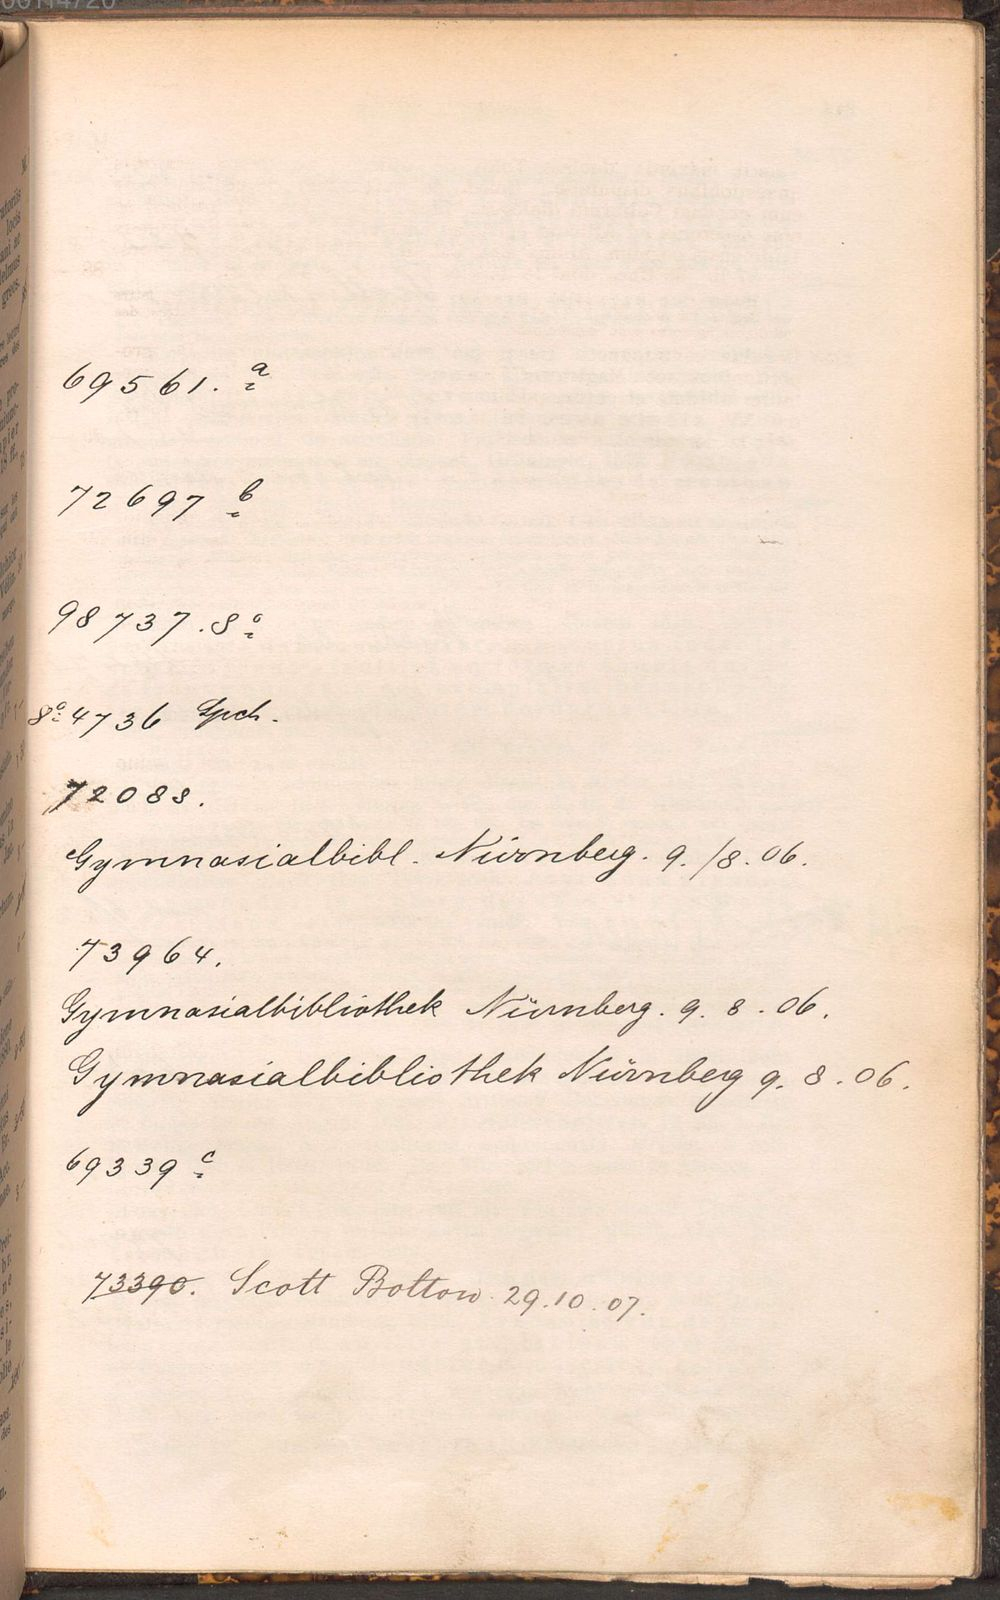 69561. a
72697 b
98737. 8o
8o 4736 Spch.
72088.
Gymnasialbibl. Nürnberg. 9./8. 06.
73964.
Gymnasialbibliothek Nürnberg. 9. 8. 06.
Gymnasialbibliothek Nürnberg 9. 8. 06.
69339 c
73390. Scott Bottow. 29. 10. 07.